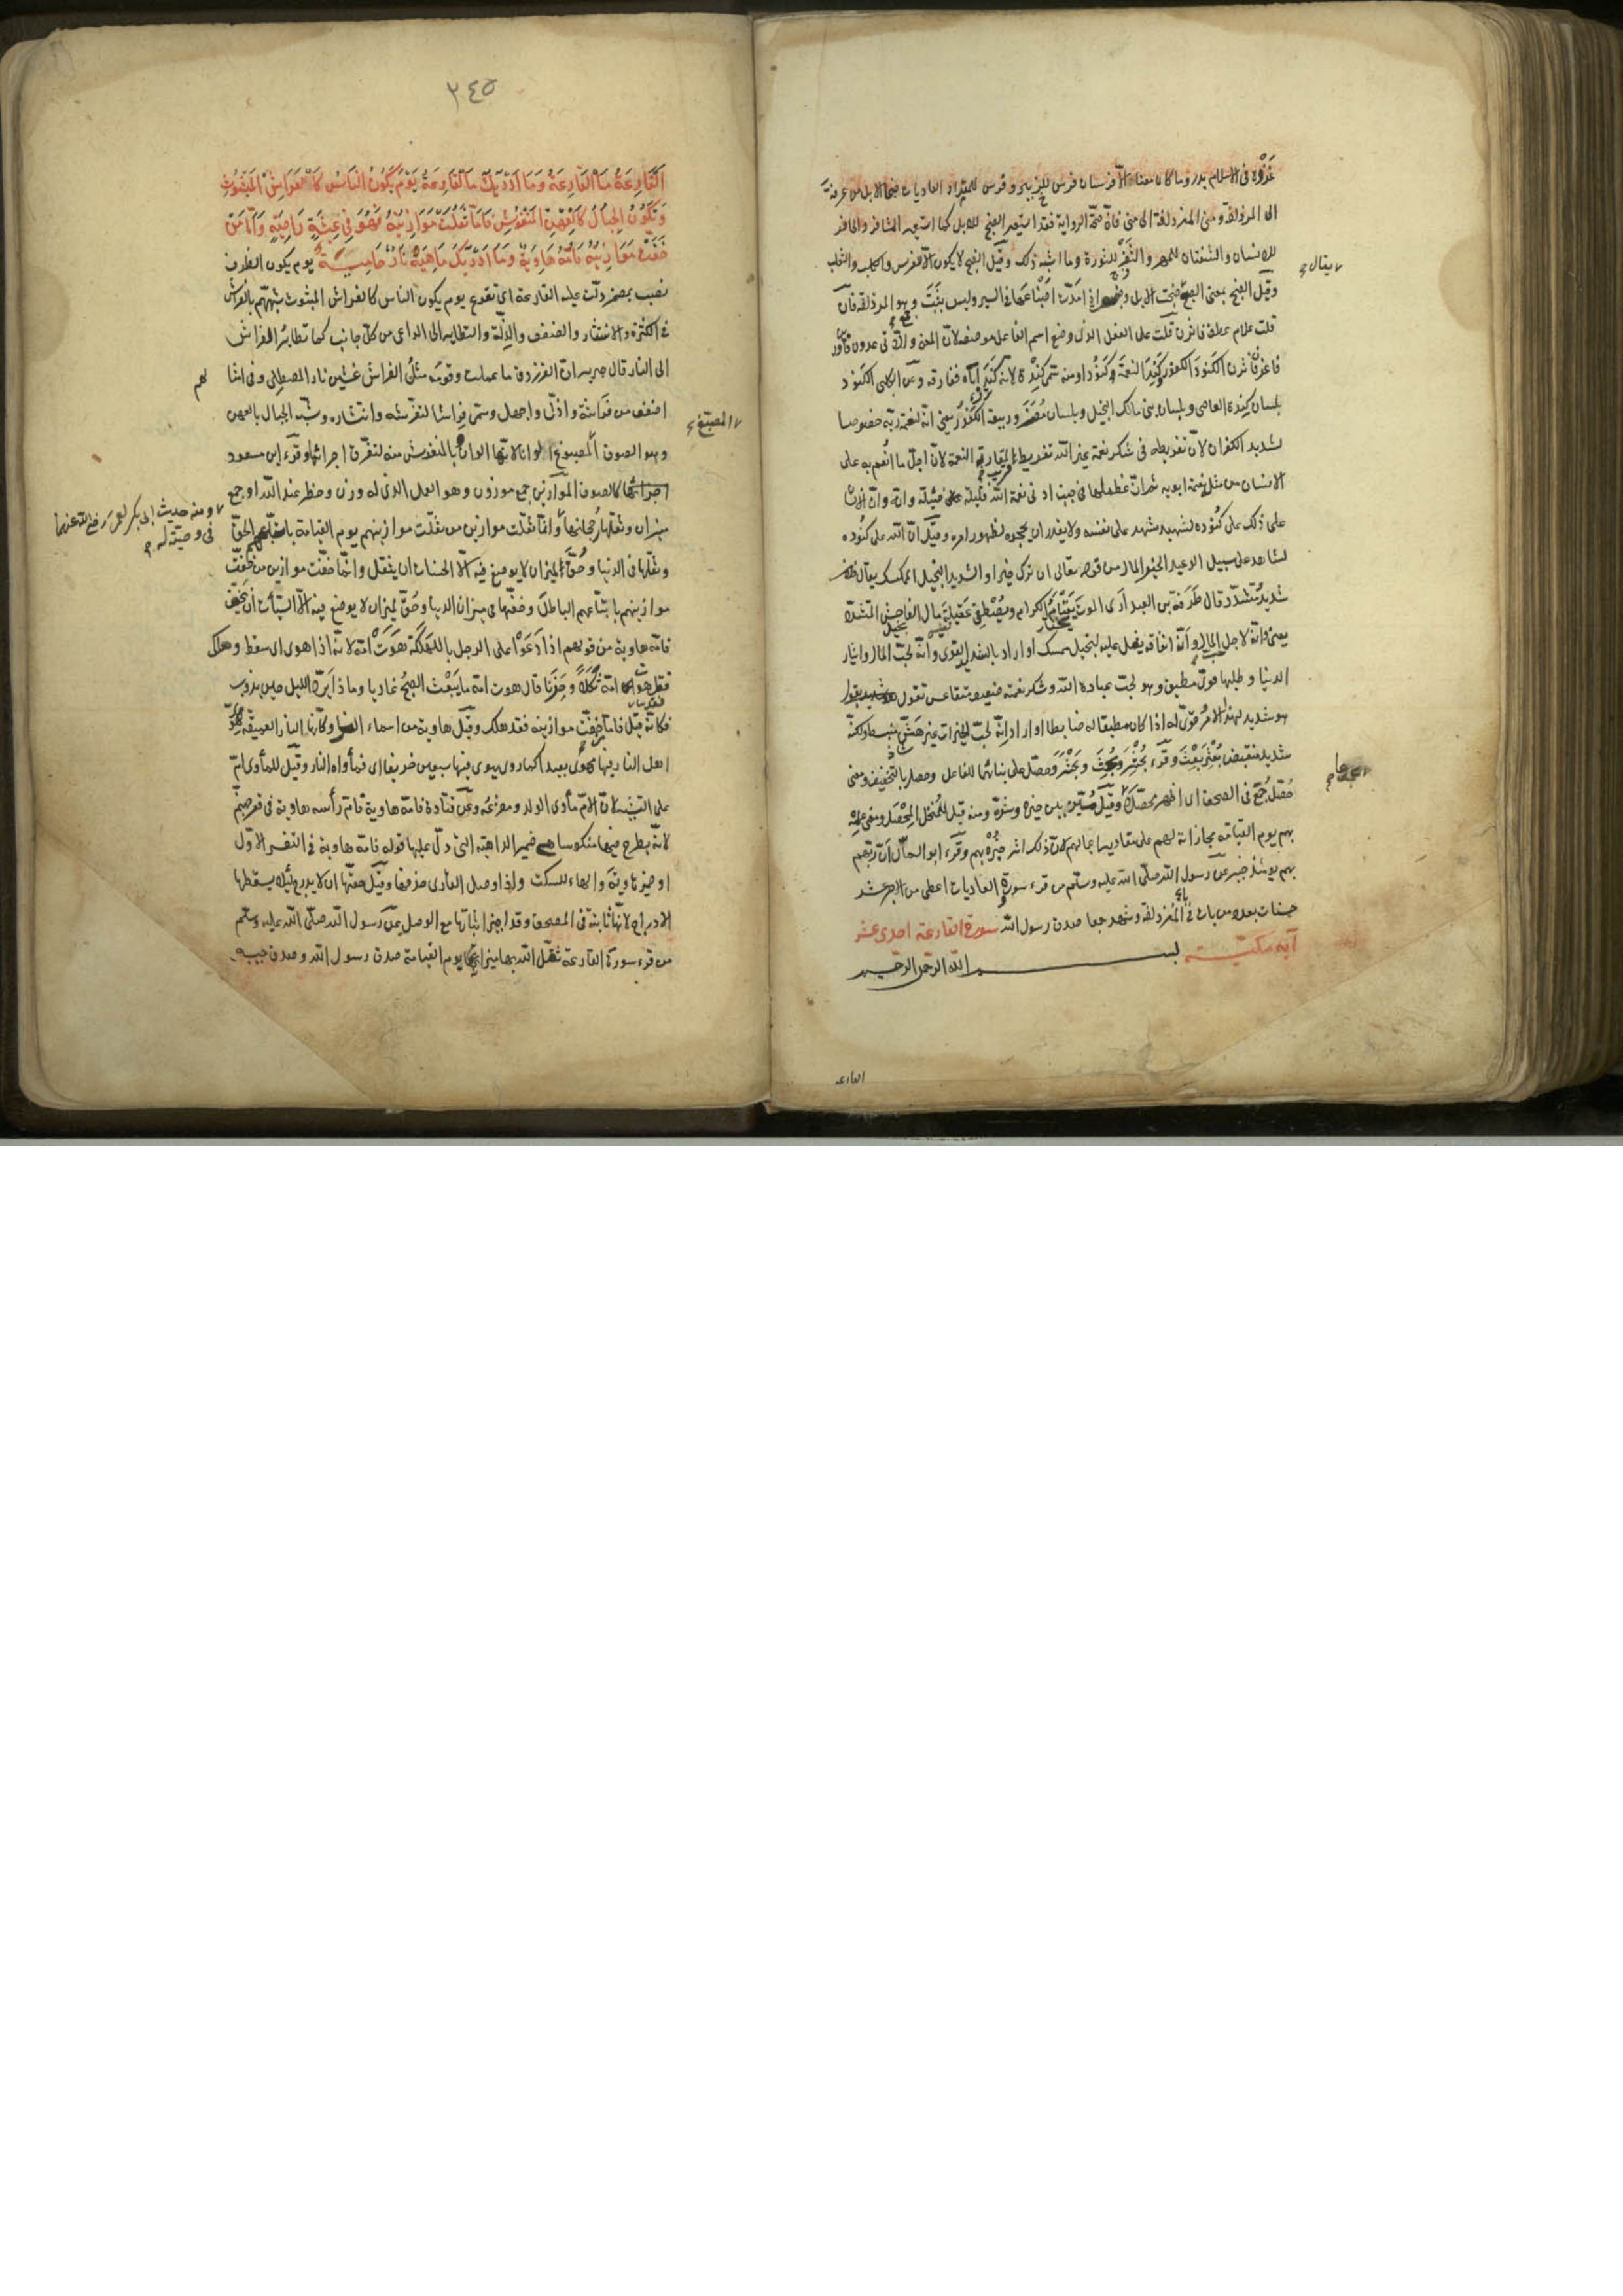 غَزْوة في الاسلام بدر وما كان معنا الّا فرسان فرس للزبير وفرس للمقداد العاديات ضبحا الابل من عرفة
الى المزدلفة ومن المزدلفة الى منى فان صحّت الرواية فقد استعير الضبح للابل كما استعير المشافر والحافر
للانسان والشفتان للمهر والثَفْر للثورة وما اشبه ذلك وقيل الضبح لا يكون الّا للفرس والكلب والثعلب
يقال
وقيل الضبح بمعنى الضبع ضبحت الابل وضبعت اذا مدّت اضباعها في السير وليس بثبت وجمع هو المزدلفة فان
قلت علام عطف فاثرن قلت على الفعل الذي وضع اسم الفاعل موضعه لانّ المعنى واللاتي عدون فاورين
فاغرن فاثرن الكَنود الكفور وكَنَد النعمة كُنودا ومنه سمّي كِندة لانه كند اباه ففارقه وعن الكلبي الكنود
بلسان كندة العاصي وبلسان بني مالك البخيل وبلسان مُضَر وربيعة الكفور يعني انّه لنعمة ربّه خصوصا
لشديد الكفران لانّ تفريطه في شكر نعمة غير الله تفريط قريب لمقاربة النعمة لانّ اجلّ ما انعم به على
الانسان من مثله نعمة ابويه ثم انّ عظماها في جنب ادنى نعمة الله قليلة ضئيلة وانّه وانّ الانسان
على ذلك على كُنوده لشهيد يشهد على نفسه ولا يقدر ان يجحده لظهور امره وقيل انّ الله على كنوده
لشاهد على سبيل الوعيد الخير المال من قوله تعالى ان ترك خيرا والشديد البخيل الممسك يقال فلان
شديد متشدّد قال طَرَفة بن العبد ارى الموت يعتام الكرام ويصطفي عقيلة مال الفاحش المتشدّد
يعني وانّه لاجل حبّ المال وانّ انفاقه يثقل عليه لبخيل ممسك او اراد بالشديد القويّ وانّه لحبّ المال وايثار
الدنيا وطلبها قويّ مطيق وهو لحبّ عبادة الله وشكر نعمته ضعيف متقاعس تقول
هو شديد لهذا الامر وقويّ له اذا كان مطيقا له ضابطا او اراد انّه لحبّ الخيرات غير هشّ منبسط ولكنّه
شديد منقبض بُعْثِر بُعِث وقرء بُحثر وبُحث وبَحْثَر وحصّل على بنائهما للفاعل وحصل بالتخفيف ومعنى
حُصّل جُمع في الصحف اي اظهر محصّلا وقيل ميّز بين خيره وشرّه ومنه قيل للمُنخل المُحصّل ومعنى علمه
بهم يوم القيامة مجازاته لهم على مقادير اعمالهم لانّ ذلك اثر خُبْره بهم وقرء ابو السمّال انّ ربّهم
بهم يومئذ خبير عن رسول الله صلّى الله عليه وسلّم من قرء سورة والعاديات اعطي من الاجر عشر
حسنات بعدد من بات في المُزدلفة وشهد جمعا صدق رسول الله سورة القارعة احدى عشر
آية مكيّة بسم الله الرحمن الرحيم
القارعة
٢٤٥
اَلْقَارِعَةُ مَا الْقَارِعَةُ وَمَا اَدْرٰيكَ مَا الْقَارِعَةُ يَوْمَ يَكُونُ النَّاسُ كَالْفَرَاشِ الْمَبْثُوثِ
وَتَكُونُ الْجِبَالُ كَالْعِهْنِ الْمَنْفُوشِ فَاَمَّا مَنْ ثَقُلَتْ مَوَازِينُهُ فَهُوَ فِي عِيشَةٍ رَاضِيَةٍ وَاَمَّا مَنْ
خَفَّتْ مَوَازِينُهُ فَاُمُّهُ هَاوِيَةٌ وَمَا اَدْرٰيكَ مَاهِيَهْ نَارٌ حَامِيَةٌ يوم يكون الظرف
نصب بمضمر دلّت عليه القارعة اي تقرع يوم يكون الناس كالفراش المبثوث شبّههم بالفراش
في الكثرة والانتشار والضعف والذلّة والتطاير الى الداعي من كلّ جانب كما تطاير الفراش
الى النار قال جرير انّ الفرزدق ما عملت وقومه مثلُ الفراش غشين نار المصطلي وفي امثالهم
اضعف من فراشة واذلّ واجهل وسمّي فراشا لتفرّشه وانتشاره وشبّه الجبال بالعهن
المصبّغ
وهو الصوف المصبوغ الوانا لانّها الوان وبالمنفوش منه لتفرّق اجزائها وقرء ابن مسعود
كالصوف الموازين جمع موزون وهو العمل الذي له وزن وخطر عند الله او جمع
ومنه حديث ابي بكر لعمر رضي الله عنهما
في وصيّته له
ميزان وثقلها رجحانها وانّما ثقلت موازين من ثقلت موازينهم يوم القيامة باتباعهم الحقّ
وثقلها في الدنيا وحُقّ لميزان لا يوضع فيه الّا الحسنات ان يثقل وانّما خفّت موازين من خفّت
موازينهم باتباعهم الباطل وخفّتها في ميزان الدنيا وحُقّ لميزان لا يوضع فيه الّا السيّئات ان يخفّ
فامّه هاوية من قولهم اذا دَعَوْا على الرجل بالهلكة هَوَتْ امّه لانّه اذا هوى اي سقط وهلك
فقد هوت امّه ثُكْلاً وحَزَنا قال هوت امّه ما يَبْعَث الصبحُ غاديا وماذا يردّ الليل حين يؤوب
فكانّه قيل فامّا من خفّت موازينه فقد هلك وقيل هاوية من اسماء النار وكانّها النار العميقة لهويّ
اهل النار فيها مهوى بعيدا كما روي يهوي فيها سبعين خريفا اي فمأواه النار وقيل للمأوى امّ
على التشبيه لانّ الامّ مأوى الولد ومفزعه وعن قتادة فامّه هاوية فامّ رأسه هاوية في قعر جهنّم
لانّه يطرح فيها منكوسا هي ضمير الداهية التي دلّ عليها قوله فامّه هاوية في التفسير الاوّل
او ضمير هاوية والهاء للسكت واذا وصل القارئ حذفها وقيل حقّها ان لا يدرج لئلّا يسقطها
الادراج لانّها ثابتة في المصحف وقد اجيز اثباتها مع الوصل عن رسول الله صلّى الله عليه وسلّم
من قرء سورة القارعة ثقّل الله بها ميزانه يوم القيامة صدق رسول الله وصدق حبيبه